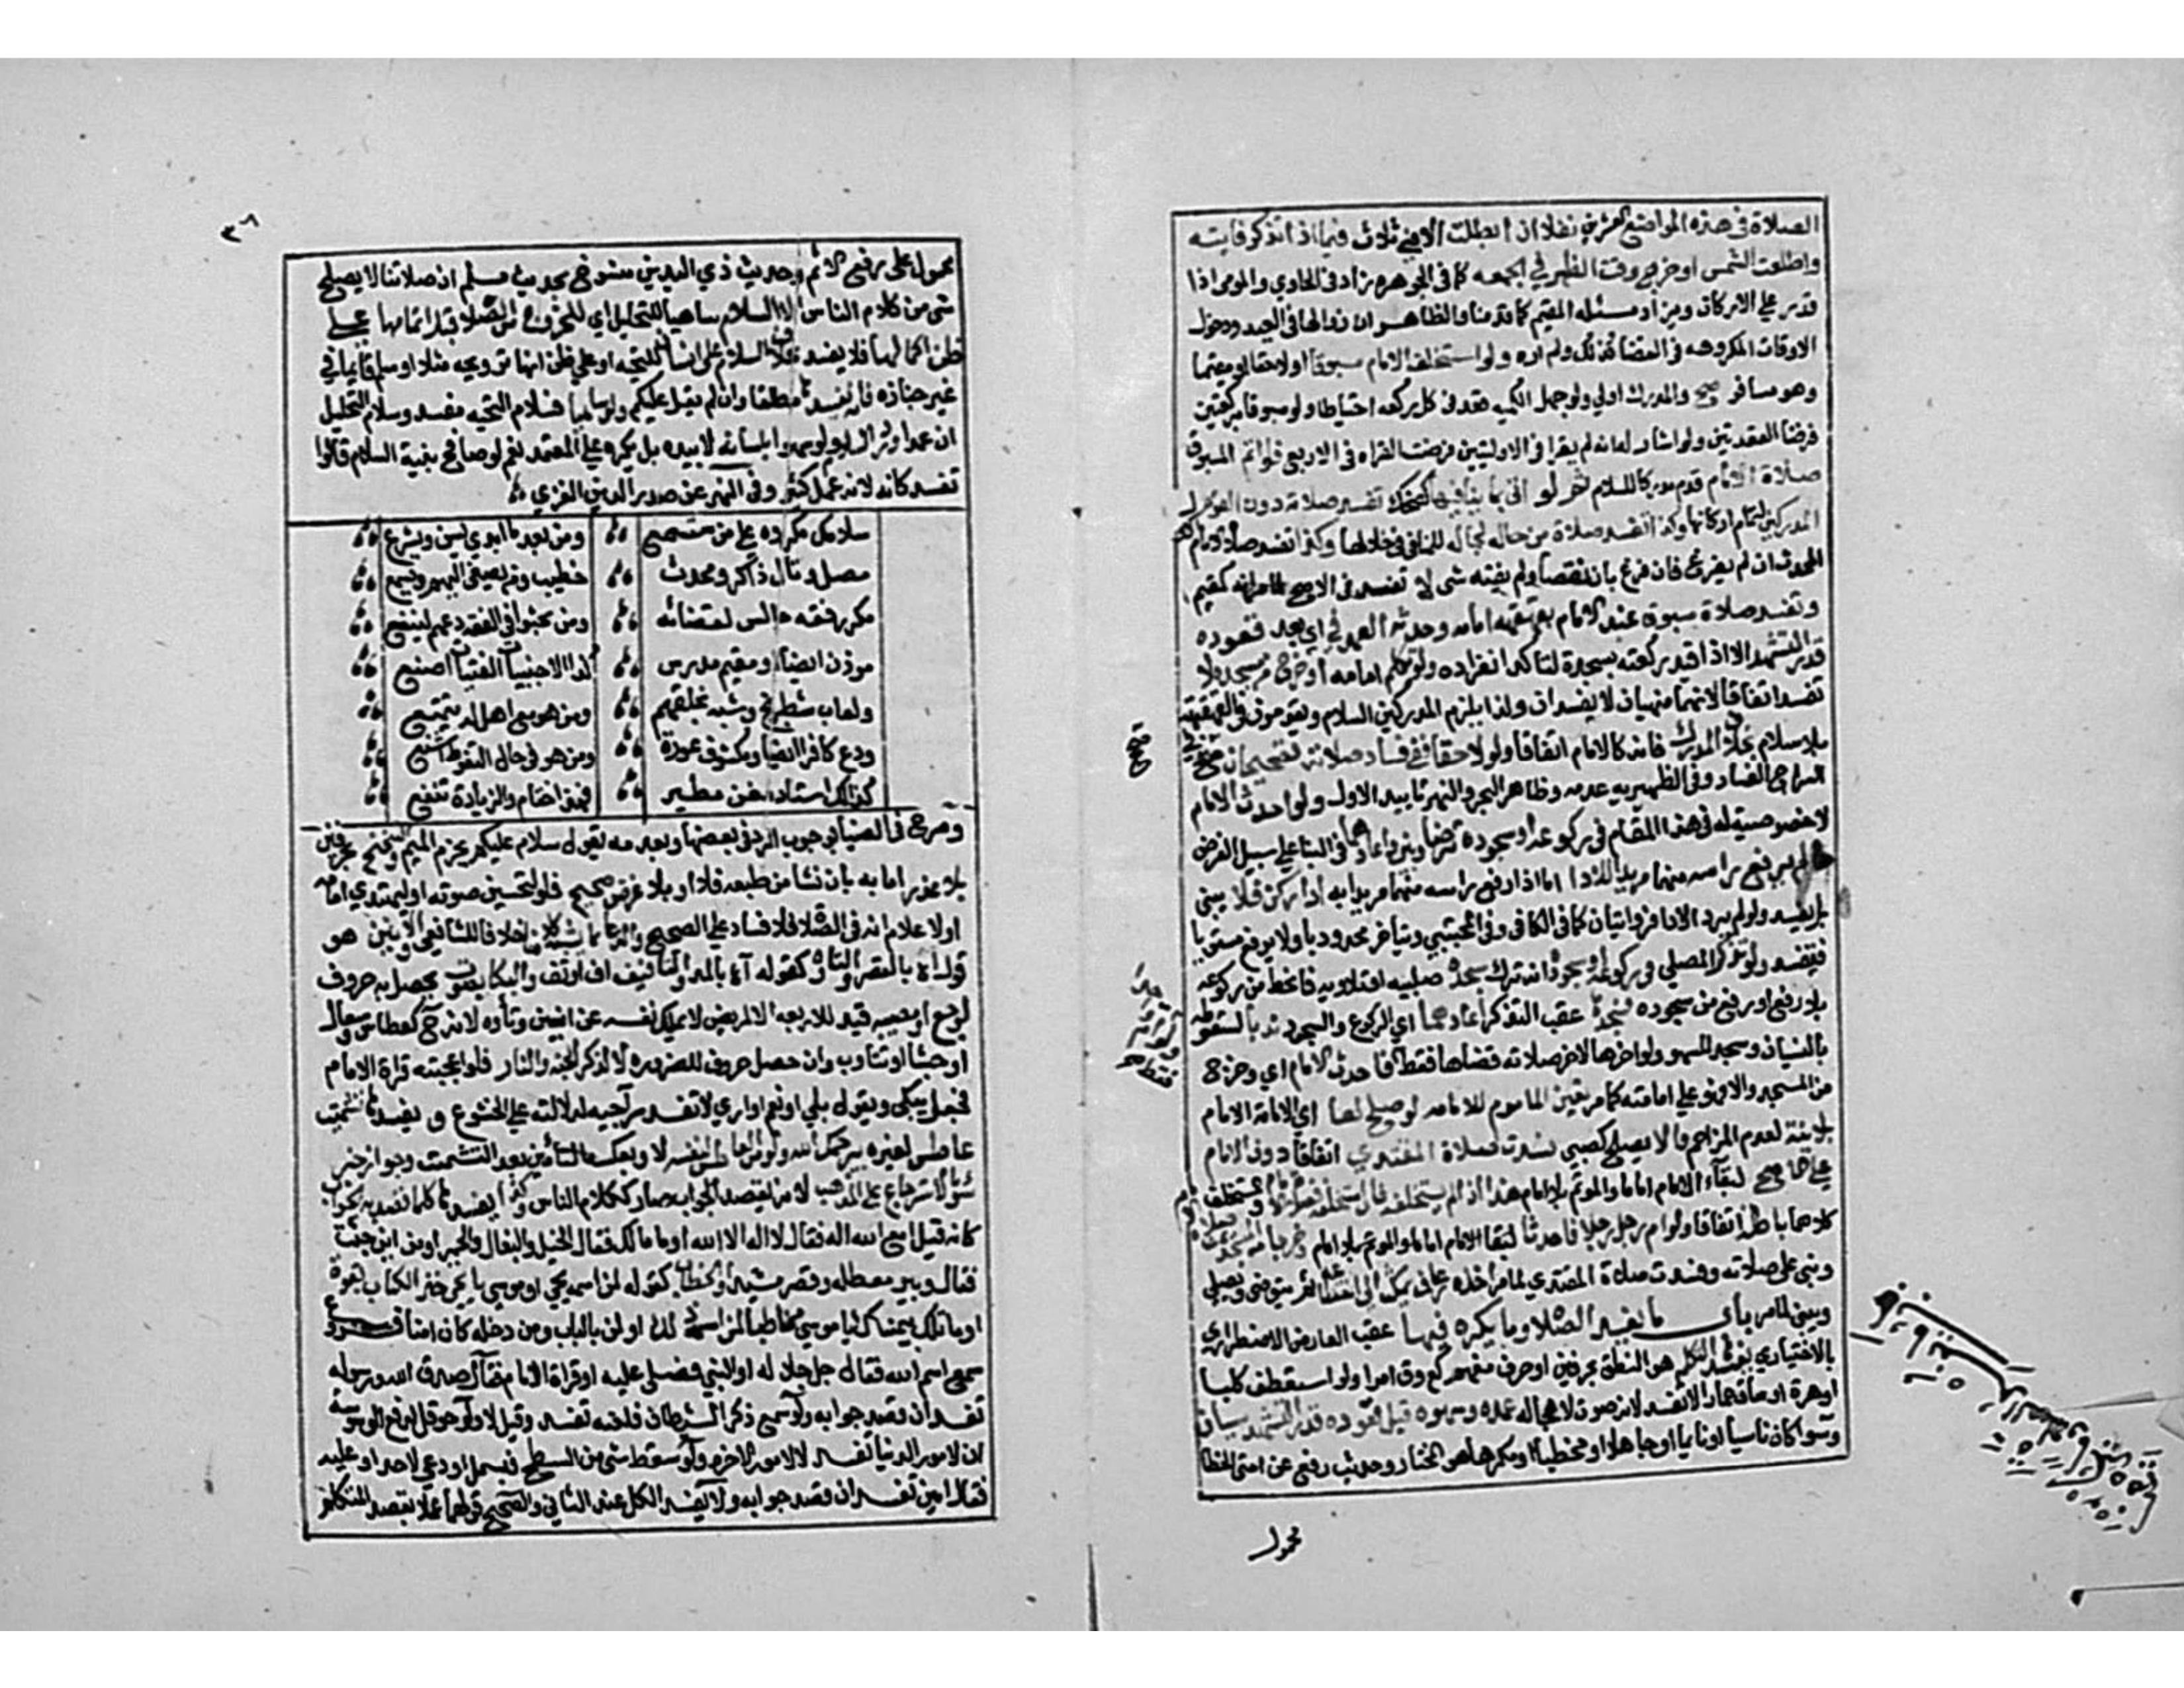 الصلاة في هذه المواضع العشرين نفلا ان ابطلت الا في ثلاث فيما اذا تذكر فايته
واطلعت الشمس او خرج وقت الظهر في الجمعه كما في الجوهره زاد في الحاوي والمومي اذا
قدر علي الاركان ومن اد مسئله المقيم كما قدمنا والظاهر ان زوالها في العيد ودخول
الاوقات المكروهه في القضا كذلك ولم اره ولو استخلف الامام مسبوقا او لاحقا او مقيما
وهو مسافر صح والمدرك اولي ولو جهل الكميه قعد في كل ركعه احتياطا ولو مسبوقا بركعتين
فرضنا القعدتين ولو اشار له انه لم يقرا في الاوليين فرضت القراه في الاربع فلو اتم المسبوق
صلاة الامام قدم مدركا للسلام ثم لو اتي بما ينافيها كضحك تفسد صلاته دون القوم
المدركين لتمام اركانها وكذا تفسد صلاة من حاله كحاله للمنافي في خلالها وكذا تفسد صلاة الامام
المحدث ان لم يفرغ فان فرغ بان توضا ولم يفته شي لا تفسد في الاصح
وتفسد صلاة مسبوق عند الامام بقهقهه امامه وحدثه العمد في اي بعد قعوده
قدر التشهد الا اذا قيد ركعته بسجدة لتاكد انفراده ولو تكلم امامه او خرج من مسجد ولا
تفسد اتفاقا لانهما منهيان لا يفسدان ولذا يلزم المدركين السلام ويقومون في القهقهة
بلا سلام بخلاف المدرك فانه كالامام اتفاقا ولو لاحقا ففي فساد صلاته تصحيحان صحح في
السراج الفساد وفي الظهيريه عدمه وظاهر البحر والنهر تاييد الاول ولو احدث الامام
لا خصوصية له في هذا المقام في ركوعه او سجوده توضا وبني واعادهما في البنا علي سبيل الفرض
ما لم يرفع راسه منهما مريدا للادا اما اذا رفع راسه منهما مريدا به ادا ركن فلا يبني
بل تفسد ولو لم يرد الادا فروايتان كما في الكافي وفي المجتبي ويتاخر محدودبا ولا يرفع مستويا
فتفسد ولو تذكر المصلي في ركوعه او سجوده انه ترك سجدة صلبيه او تلاويه فانحط من ركوعه
بلا رفع او رفع من سجوده فسجدها عقب التذكر اعادهما اي الركوع والسجود ندبا لسقوطه
بالنسيان وسجد للسهو ولو اخرها لاخر صلاته قضاها فقط كما احدث الامام اي وخرج
من المسجد والا فهو علي امامته كما مر تعين الماموم للامامه لو صلح لها اي لامامة الامام
بلا نية لعدم المزاحم والا يصلح كصبي فسدت صلاة المقتدي اتفاقا دون الامام
علي الاصح لبقاء الامام اماما والموتم بلا امام هذا اذا لم يستخلفه فان استخلفه فصلاة الامام والمستخلف
كلاهما باطلة اتفاقا ولو ام رجل رجلا فاحدثا لبقا الامام اماما والموتم بلا امام وخرجا من المسجد
وبني علي صلاته وفسدت صلاة المقتدي لما مر اخذه رعاف يمكث الي انقطاعه ثم يتوضي ويصلي
ويبني لما مر باب ما يفسد الصلاة وما يكره فيها عقب العارض الاضطراري
بالاختياري يفسدها التكلم هو النطق بحرفين او حرف مفهم كع وق امرا ولو استعطف كلبا
او هرة او ساق حمارا لا تفسد لانه صوت لا هجا له عمده وسهوه قبل قعوده قدر التشهد سيان
وسوا كان ناسيا او نايما او جاهلا او مخطيا او مكرها هو المختار وحديث رفع عن امتي الخطا
محمول
٣٨
محمول علي رفع الاثم وحديث ذي اليدين منسوخ بحديث مسلم ان صلاتنا لا يصلح
شي من كلام الناس الا السلام ساهيا للتحليل اي للخروج من الصلاة قبل اتمامها علي
ظن اكمالها فلا يفسد بخلاف السلام علي انسان للتحيه او علي ظن انها ترويحه مثلا او سلم قايما في
غير جنازه فانه يفسدها مطلقا وان لم يقل عليكم ولو ساهيا فسلام التحيه مفسد وسلام التحليل
ان عمدا ورد السلام ولو سهوا بلسانه لا بيده بل يكره علي المعتمد نعم لو صافح بنية السلام قالوا
تفسد كانه لانه عمل كثير وفي النهر عن صدر الدين الغزي
سلامك مكروه علي من ستسمع ومن بعد ما ابدي يسن ويشرع
مصل وتال ذاكر ومحدث خطيب ومن يصغي اليهم ويسمع
مكرر فقه جالس لقضائه ومن بحثوا في الفقه دعهم لينفعوا
موذن ايضا او مقيم مدرس كذا الاجنبيات الفتيات امنع
ولعاب شطرنج وشبه بخلقهم ومن هو مع اهل له يتمتع
ودع كافرا ايضا ومكشوف عورة ومن هو في حال التغوط اشنع
كذلك استاذ مغن مطير فهذا ختام والزيادة تنفع
وصرح في الضيا بوجوب الرد في بعضها وبعدمه بقول سلام عليكم بجزم الميم والتنحنح بحرفين
بلا عذر اما به بان نشا من طبعه فلا او بلا غرض صحيح فلو لتحسين صوته او ليهتدي امامه
او لاعلام انه في الصلاة فلا فساد علي الصحيح والدعا بما يشبه كلامنا خلافا للشافعي والانين هو
قوله اه بالقصر والتاوه كقوله آه بالمد والتافيف اف او تف والبكا بصوت يحصل به حروف
لوجع او مصيبه قيد للاربعه الا لمريض لا يملك نفسه عن انين وتاوه لانه ح كعطاس وسعال
او جشا او تثاوب وان حصل حروف للضروره لا لذكر الجنه والنار فلو اعجبته قراة الامام
فجعل يبكي ويقول بلي او نعم او اري لا تفسد سراجيه لدلالته علي الخشوع و يفسدها تشميت
عاطس لغيره بيرحمك الله ولو من العاطس لنفسه لا وبعكسه التامين بعد التشميت وجواز خبر
سوء بالاسترجاع علي المذهب لانه بقصد الجواب صار ككلام الناس وكذا يفسدها كلما قصد به الجواب
كانه قيل امع الله اله فقال لا اله الا الله او ما مالك فقال الخيل والبغال والحمير او من اين جئت
فقال وبير معطله وقصر مشيد او الخطاب كقوله لمن اسمه يحي او موسي يا يحي خذ الكتاب بقوة
او ما تلك بيمينك يا موسي مخاطبا لمن اسمه ذلك او لمن بالباب ومن دخله كان امنا فروع
سمع اسم الله فقال جل جلاله او النبي فصلي عليه او قراة الامام فقال صدق الله ورسوله
تفسد ان قصد جوابه ولو سمع ذكر الشيطان فلعنه تفسد وقيل لا ولو حوقل لدفع الوسوسة
ان لامور الدنيا تفسد لا لامور الاخره ولو سقط شي من السطح فبسمل او دعي لاحد او عليه
فقال امين تفسد ان قصد جوابه ولا يفسد الكل عند الثاني والصحيح قولهما عملا بقصد المتكلم